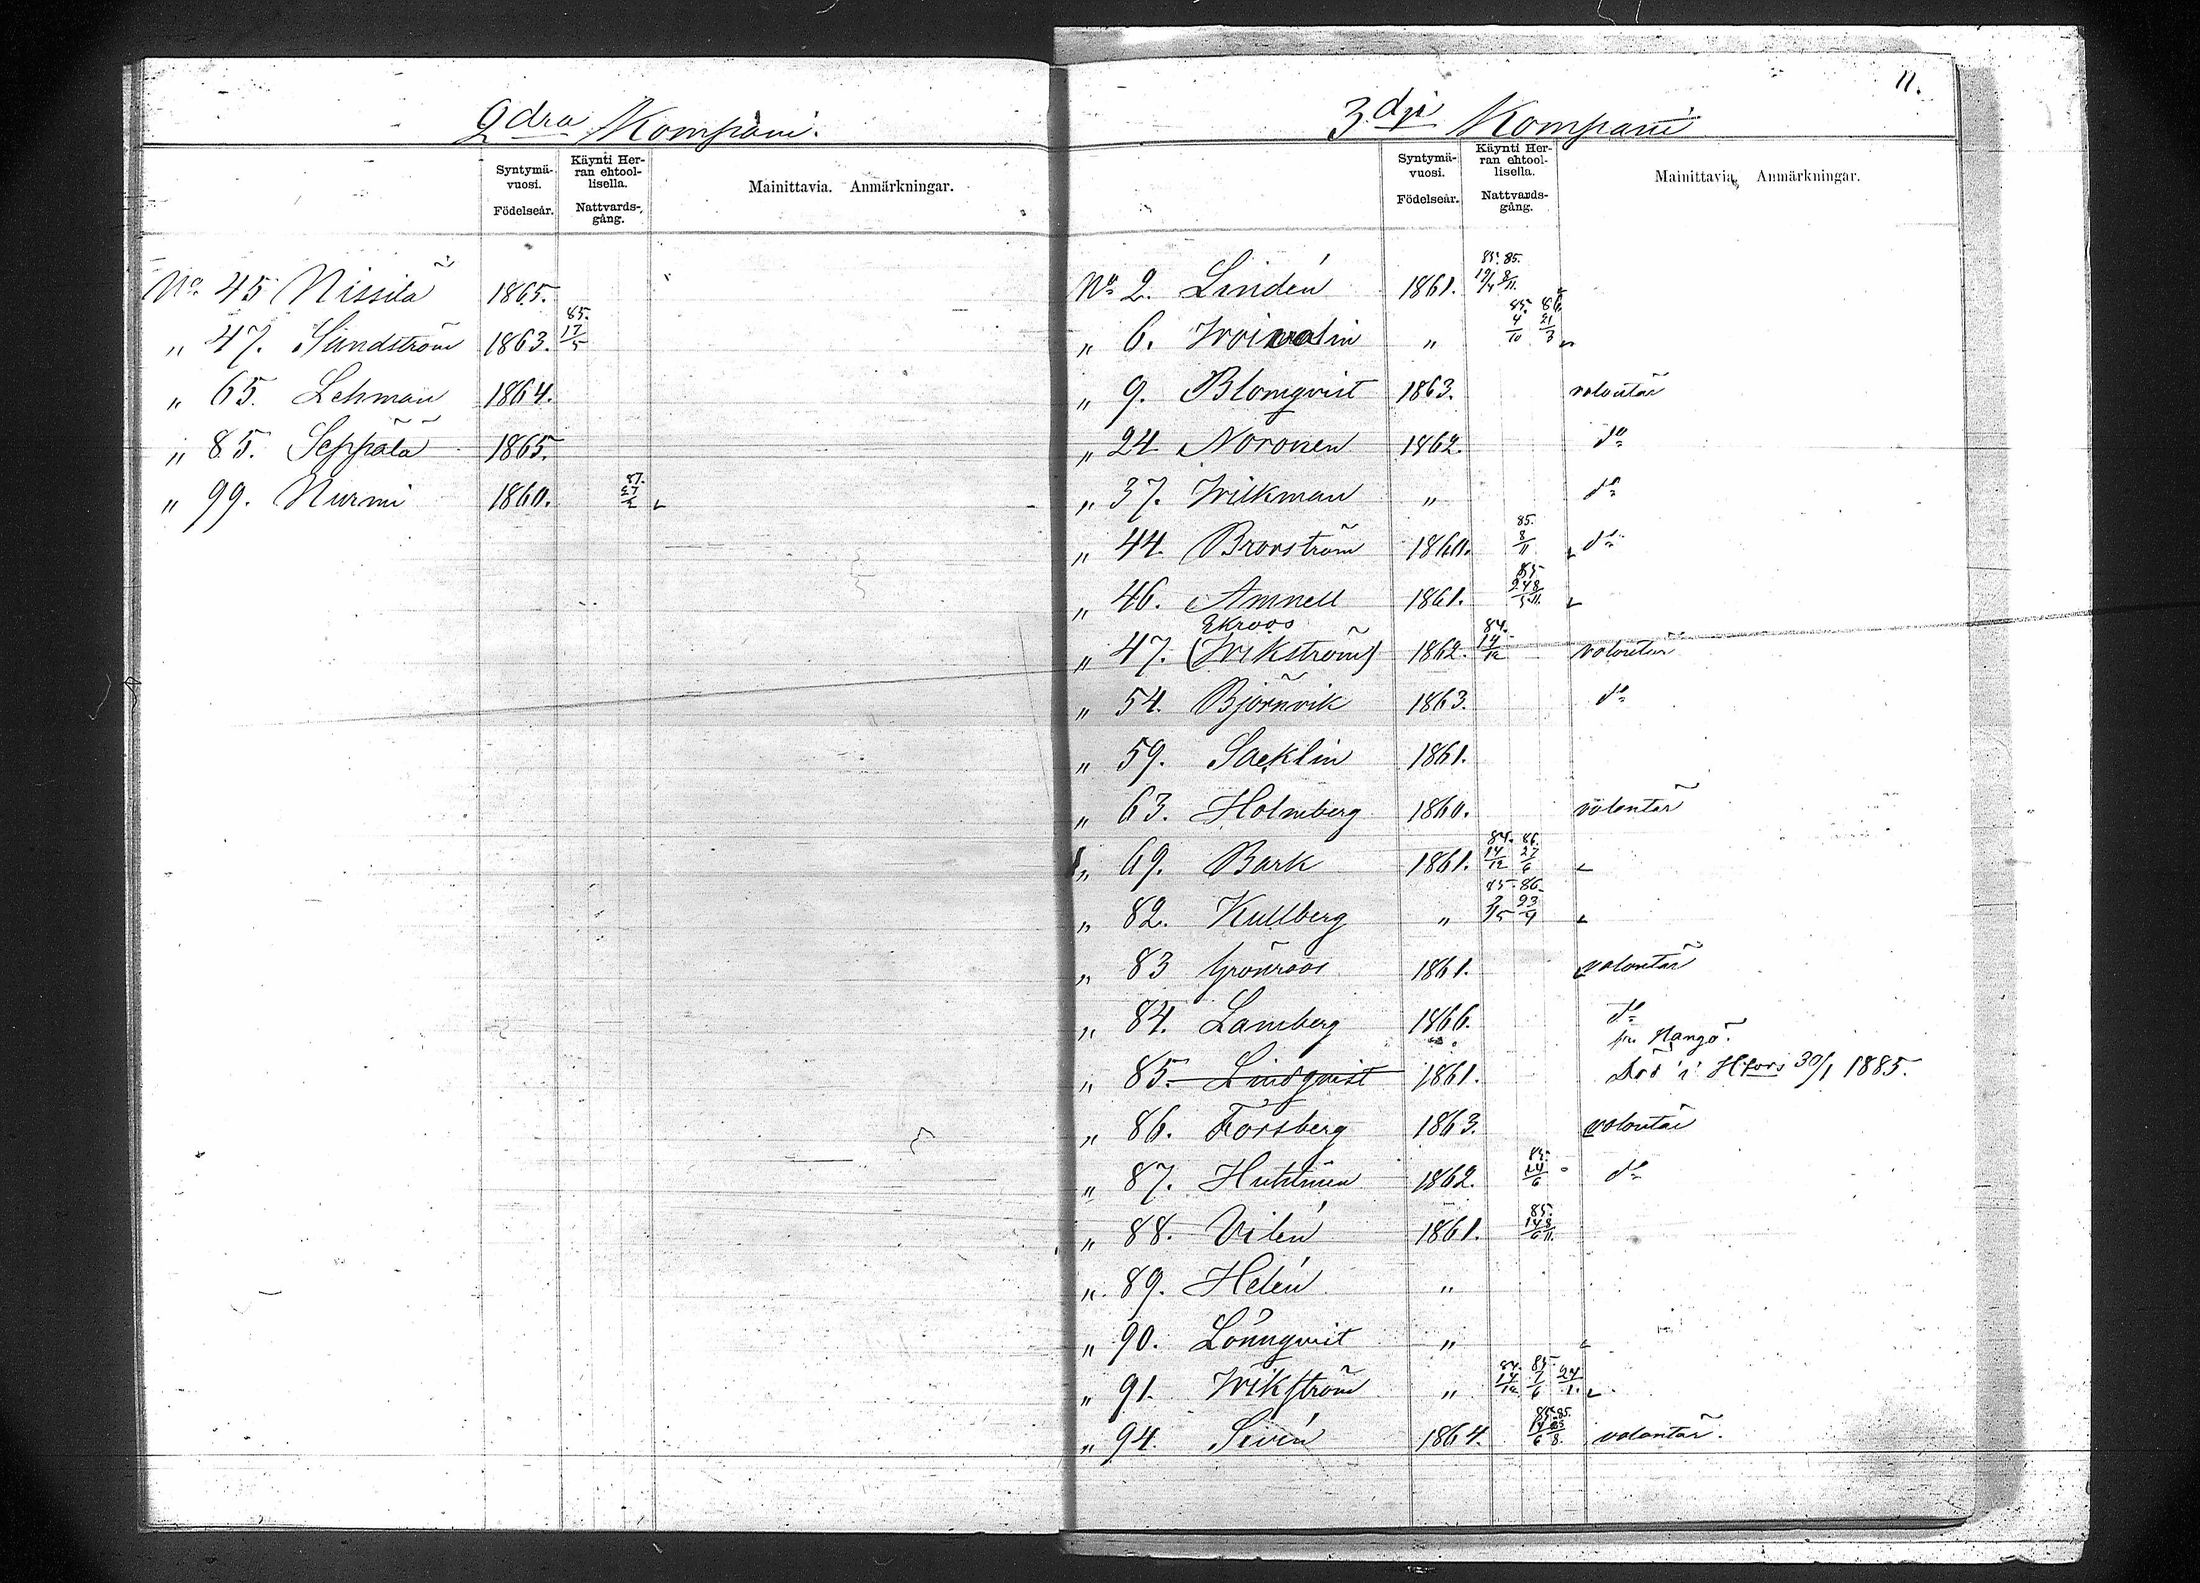 2dra Kompani.
Syntymä-vuosi. Födelseår.
Käynti Her-ran ehtool-lisella. Nattvards-gång.
Mainittavia. Anmärkningar.
No 45 Nissilä 1865.
" 47. Sundström 1863. 85. 17/5
" 65. Lehman 1864.
" 85. Seppälä 1865.
" 99. Nurmi 1860. 87. 27/2
11.
3dje Kompani
Syntymä-vuosi. Födelseår.
Käynti Her-ran ehtool-lisella. Nattvards-gång.
Mainittavia. Anmärkningar.
No 2. Lindén 1861. 85. 85. 19/4 8/11.
" 6. Woivalin " 85. 4/10 86. 21/3
" 9. Blomqvist 1863. volontär
" 24 Noronen 1862. do
" 37. Wilkman " do
" 44. Brorström 1860. 85. 8/11 do
" 46. Amnell 1861. 85. 24/5 8/11.
Ekroos
" 47. (Wikström) 1862. 84. 14/12 volontär
" 54. Björnvik 1863. do
" 59. Sacklin 1861.
" 63. Holmberg 1860. volontär
" 69. Bark 1861. 84. 14/12 86. 27/6
" 82. Kullberg " 85. 3/5 86. 23/4
" 83 Grönroos 1861. volontär
" 84. Lamberg 1866. do
fr. Hangö.
" 85. Lindqvist 1861. Död i Hfors 30/1 1885.
" 86. Forsberg 1863. volontär
" 87. Huhtinen 1862. 85. 14/6 do
" 88. Vilén 1861. 85. 14/6 8/11.
" 89. Helén "
" 90. Lönnqvist "
" 91. Wikström " 84. 14/12 85. 7/6 24/1.
" 94. Sivén 1864. 85. 85. 14/6 23/8. volontär.